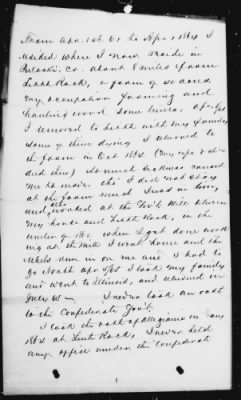 From Apr. 1st 61 to Apr. 1864 I
resided where I now reside in
Pulaski, Co. about 8 miles from
Little Rock, a farm of 80 acres,
my occupation farming and
hauling wood some times. Apr.
I removed to with my family
some of them dying I returned to
the farm in Oct 186 (my wife & all
died then) so much sickness caused
me to move. tho' I did not stay
at the farm much I was in town,
and also worked at the mill between
my house and Little Rock, in the
winter of when I got done work
ing at the mill I went home and the
in on me and I had to
go North apr. I took my family
and went to Illinois, and returned in
July 65 — I never took an oath
to the Confederate Gov't.
I took the oath of allegiance in Jany
at Little Rock, I never held
any office under the Confederate